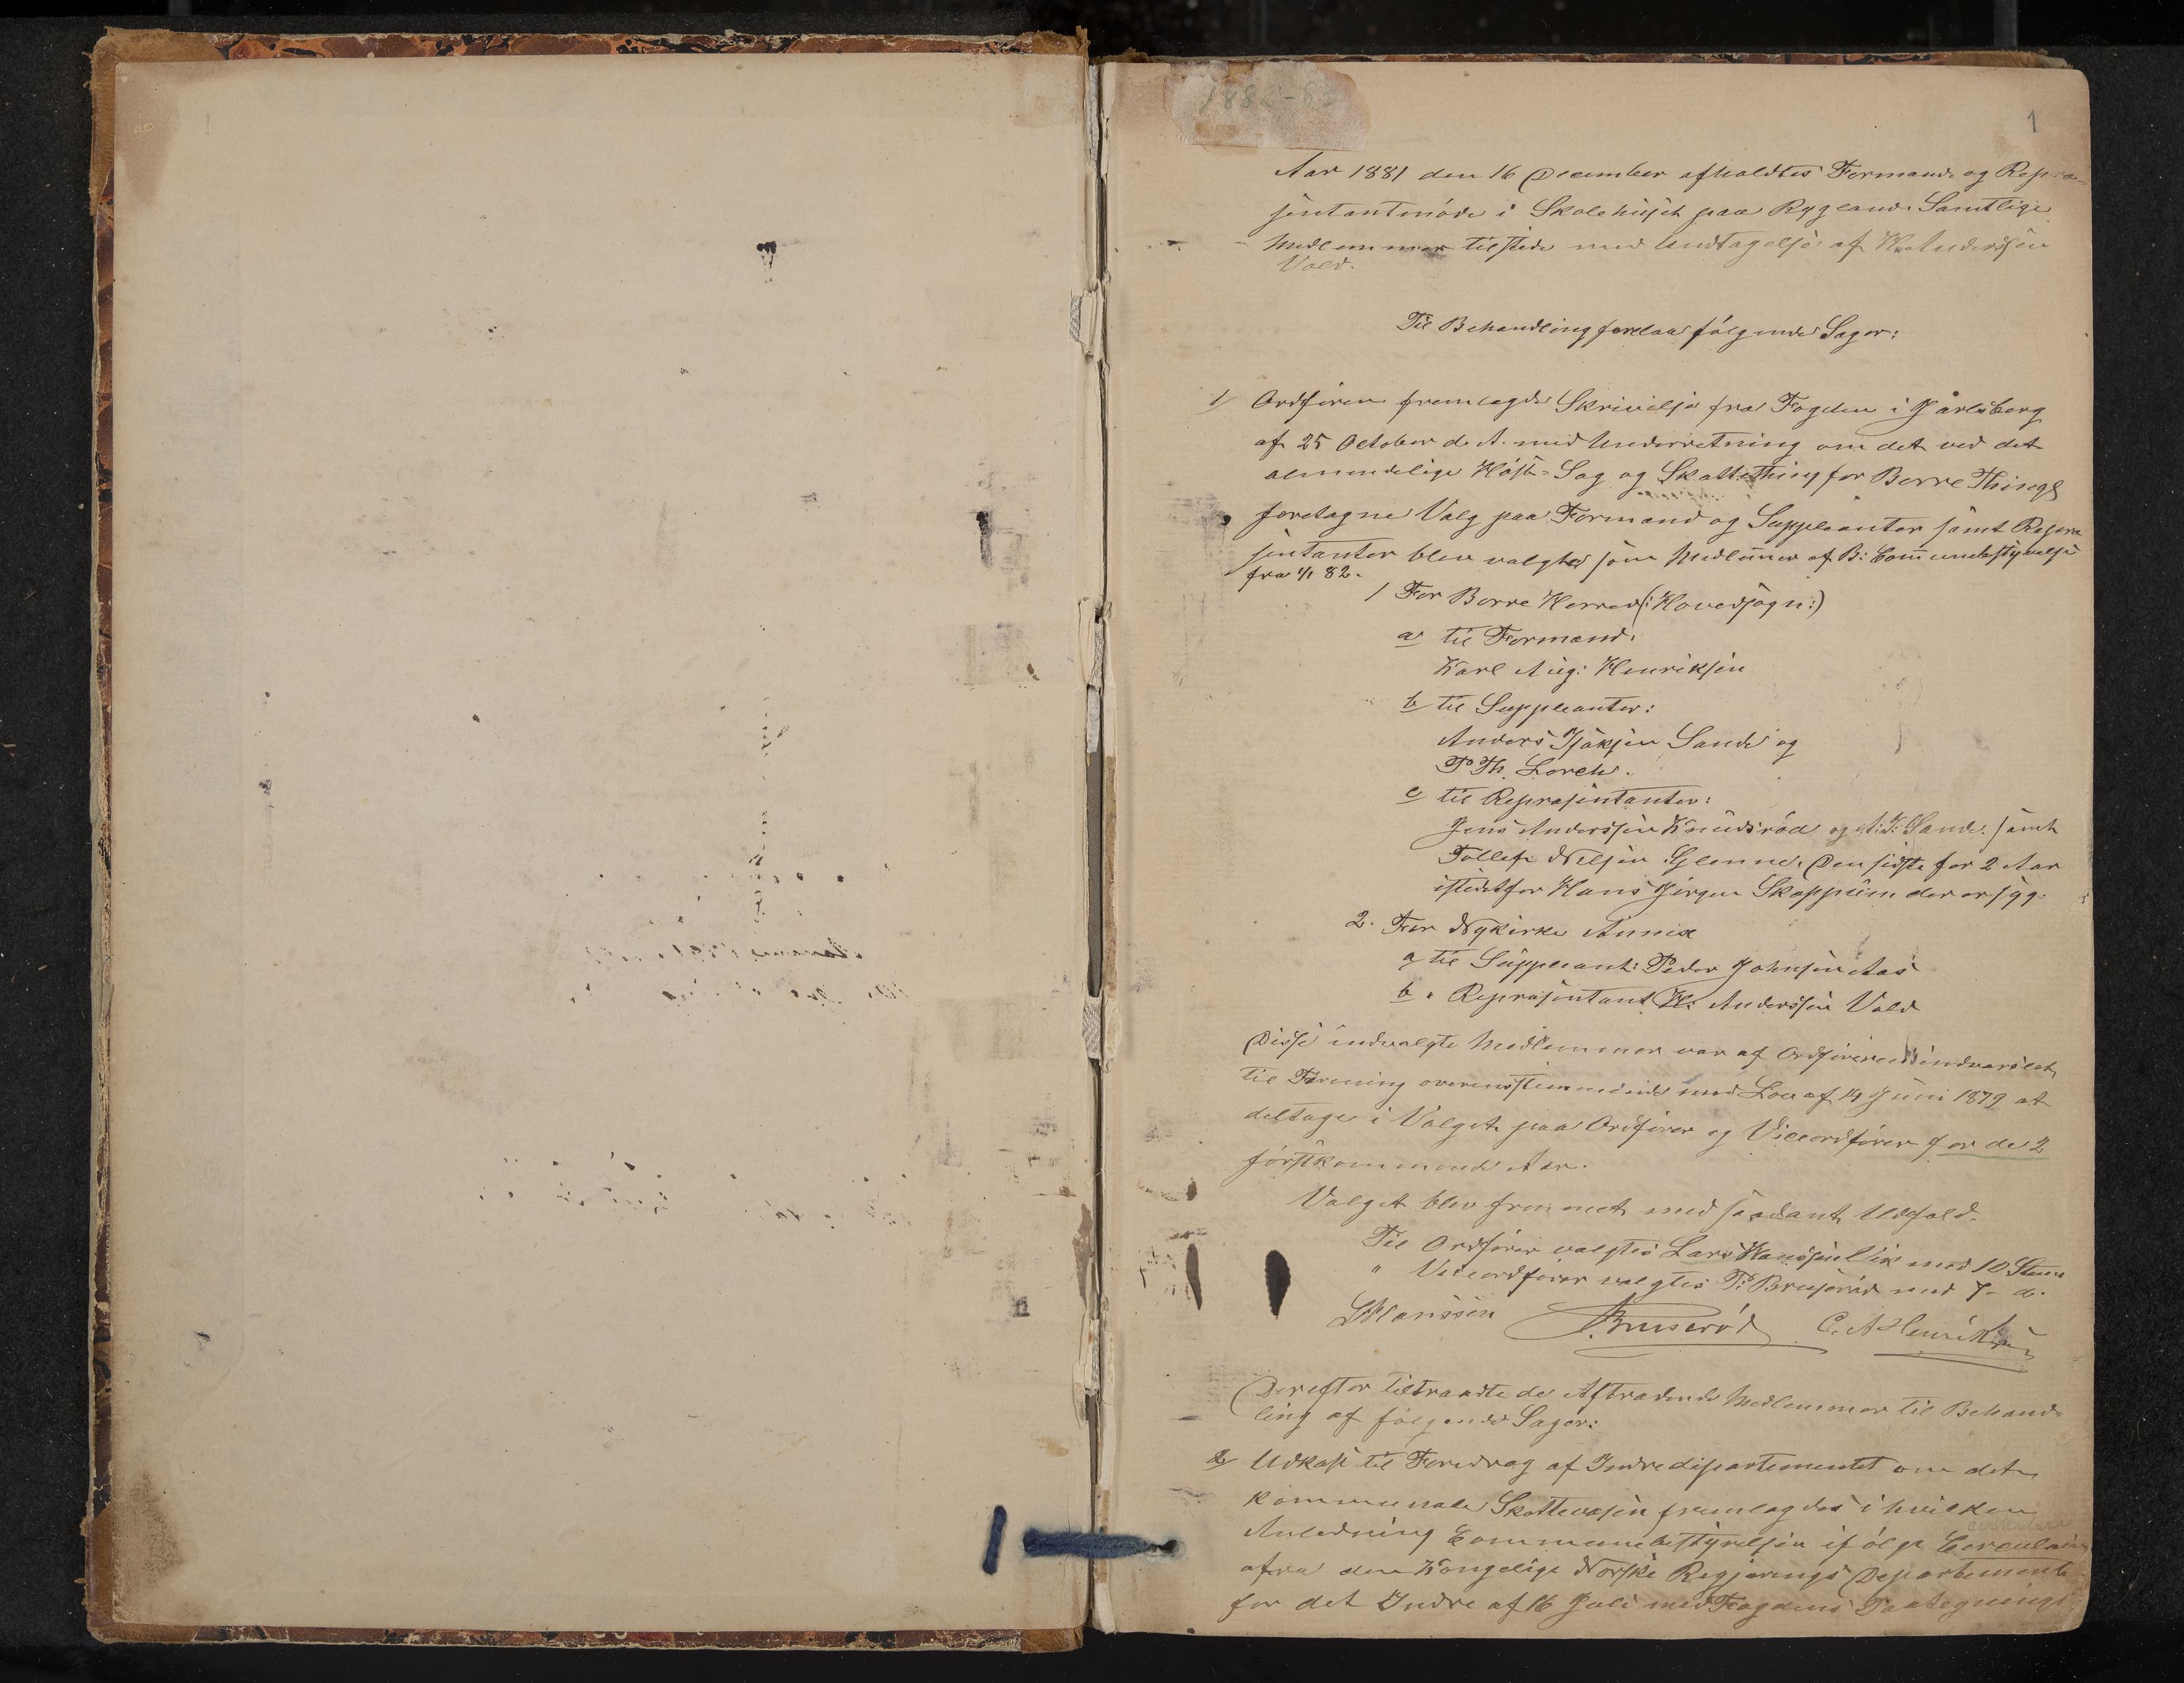 1882-8
1
Aar 1881 den 16 December afholdtes Formands og Repræ-
sentantmöde i Skolehuset paa Rygland. Samtlige
Medlemmer tilstede med Undtagelse af H. Anderssen
Vold.
Til Behandling forelaa fölgende Sager:
1/ Ordfören fremlagde Skrivelse fra Fogden i Jarlsberg
af 25 October d. A. med Underretning om det ved det
almindelige Höst-Sag og Skattething for Borre Thingl
foretagne Valg paa Formænd og Suppleanter samt Repræ
sentanter blev valgte som Medlemer af B: Communebestyrelse
fra 1/1 82.
1 For Borre Herred (: Hovedsogn :)
a til Formænd.
Karl Aug: Henriksen
b til Suppleanter:
Anders Isaksen Sande og
P Th. Lorch.
c til Repræsentanter:
Jens Anderssen Knudsröd og A: I: Sande. samt
Tollef Nilsen Glenne. Den sidste for 2 Aar
istedetfor Hans Jörgen Skoppum der er syg.
2. For Nykirke Annex
a til Suppleant: Peder Johnsen Aas
b " Repræsentant H: Anderssen Vold
Disse indvalgte Medlemmer var af Ordföreren indvarslet
til Forening overensstemmende med Lov af 14 Juni 1879 at
deltage i Valget paa Ordförer og Viceordförer for de 2
förstkommende Aar.
Valget blev fremmet med saadant Udfald.
Til Ordförer valgtes Lars Hanssen Vik med 10 Stem
" Viceordförer valgtes P: Bruseröd med 7- d.
L Hanssen Bruseröd C. A Henriksen
Derefter tiltraadte de Aftrædende Medlemmer til Behand-
ling af fölgende Sager:
2/ Udkast til Foredrag af Indredepartementet om det
kommunale Skattevæsen fremlagdes i hvilken
Anledning Communebestyrelsen ifölge Circulaire
fra den Kongelige Norske Regjerings Departement
for det Indre af 16 Juli med Fogdens Paategnings